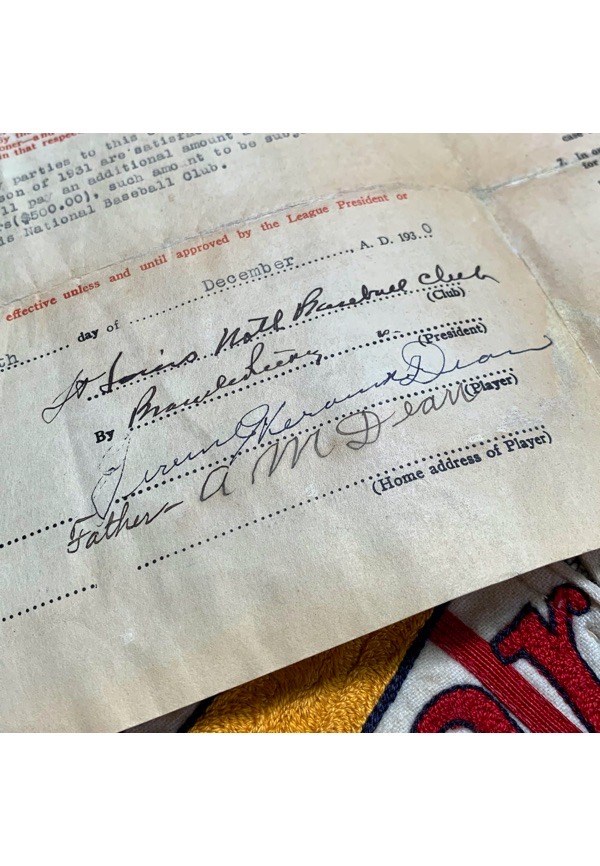 in that respec
parties to this
son of 1931 are satisfa
ll pay an additional amount
rs($500.00), such amount to be subj
is National Baseball Club.
effective unless and until approved by the League President or
th day of December, A. D. 1930
St Louis Natl Baseball Club
(Club)
By Branch Rickey
(President)
Jerome Herman Dean
(Player)
Father - A M Dean
(Home address of Player)
2. In
for